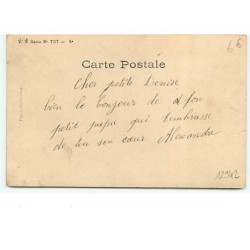 Série N° 757 -
66
Carte Postale
Cher petite Denise
bien le bonjour de ton
petit papa qui t'embrasse
de tou son cœur Alexandre
12942